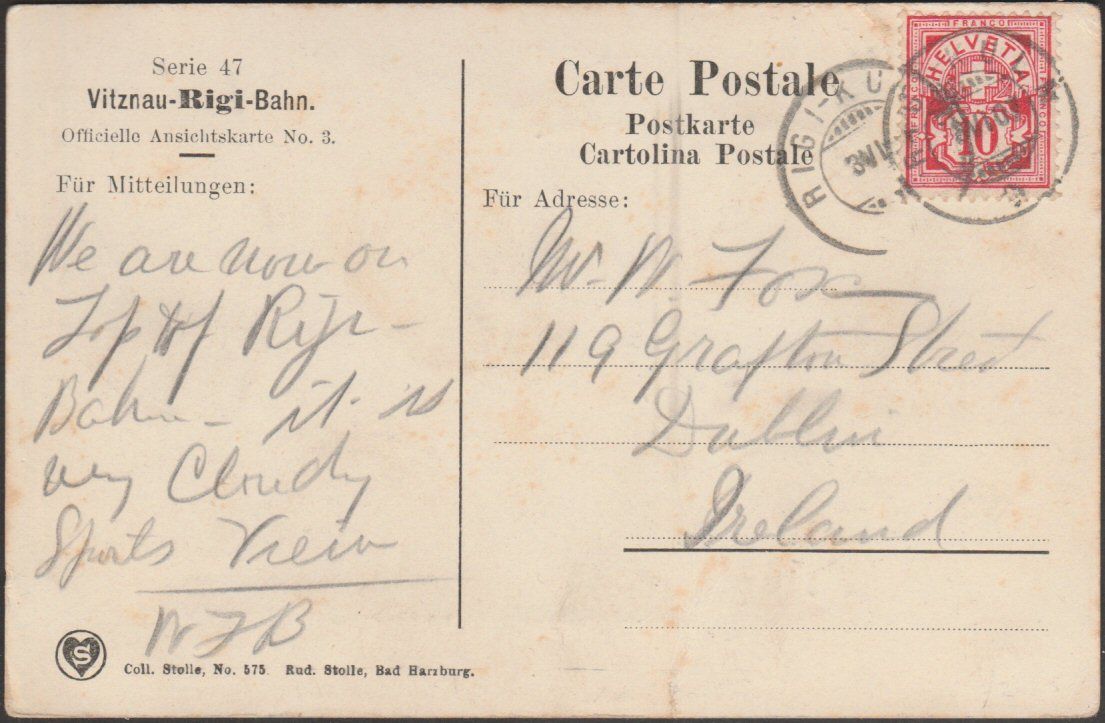 Serie 47
Vitznau-Rigi-Bahn.
Officielle Ansichtskarte No. 3.
Für Mitteilungen:
We are now on
Top of Rigi-
Bahn - it is
very Cloudy
Spoils View
WJB
S
Coll. Stolle, No. 575. Rud. Stolle, Bad Harzburg.
Carte Postale
Postkarte
Cartolina Postale
Für Adresse:
Mr. W. Fox
119 Grafton Street
Dublin
Ireland
FRANCO
HELVETIA
10
RIGI-KU